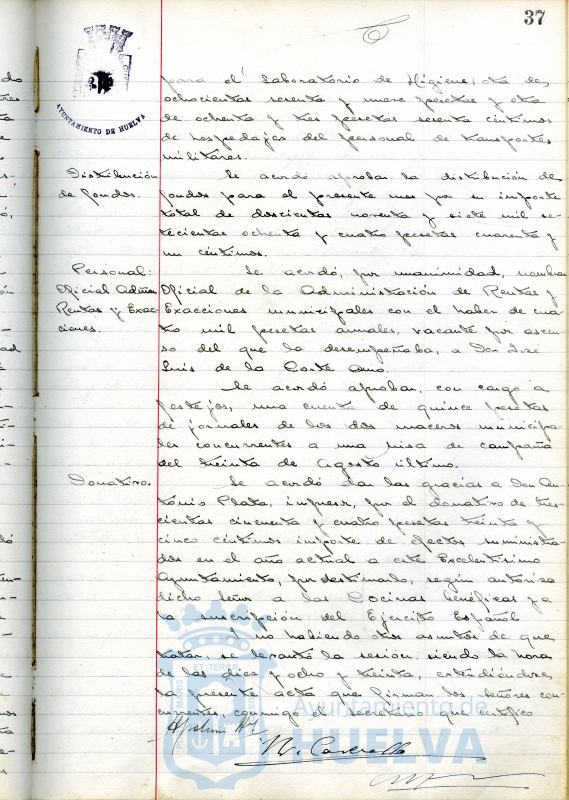 37
AYUNTAMIENTO DE HUELVA
para el Laboratorio de Higiene, otra de
ochocientas sesenta y nueve pesetas y otra
de ochenta y tres pesetas sesenta céntimos
de hospedajes del personal de transportes
militares.
Distribución
de fondos.
Se acordó aprobar la distribución de
fondos para el presente mes por su importe
total de doscientas noventa y siete mil se-
tecientas ochenta y cuatro pesetas cuarenta y
un céntimos.
Personal:
Oficial Admón
Rentas y Exac-
ciones.
Se acordó, por unanimidad, nombrar
Oficial de la Administración de Rentas y
Exacciones municipales con el haber de cua-
tro mil pesetas anuales, vacante por ascen-
so del que la desempeñaba, a Don José
Luis de la Corte Amo.
Se acordó aprobar, con cargo a
festejos, una cuenta de quince pesetas
de jornales de los dos maceros municipa-
les concurrentes a una misa de campaña
del treinta de Agosto último.
Donativo.
Se acordó dar las gracias a Don An-
tonio Plata, impresor, por el donativo de tres-
cientas cincuenta y cuatro pesetas treinta y
cinco céntimos importe de efectos suministra-
dos en el año actual a este Excelentísimo
Ayuntamiento, por destinado, según autoriza
dicho señor a las Cocinas benéficas y a
la suscripción del Ejército Español
Y no habiendo otros asuntos de que
tratar, se levantó la sesión, siendo la hora
de las diez y ocho y treinta, extendiéndose
la presente acta que firman los señores con-
currentes, conmigo el secretario que certifico
Ayuntamiento de
HUELVA